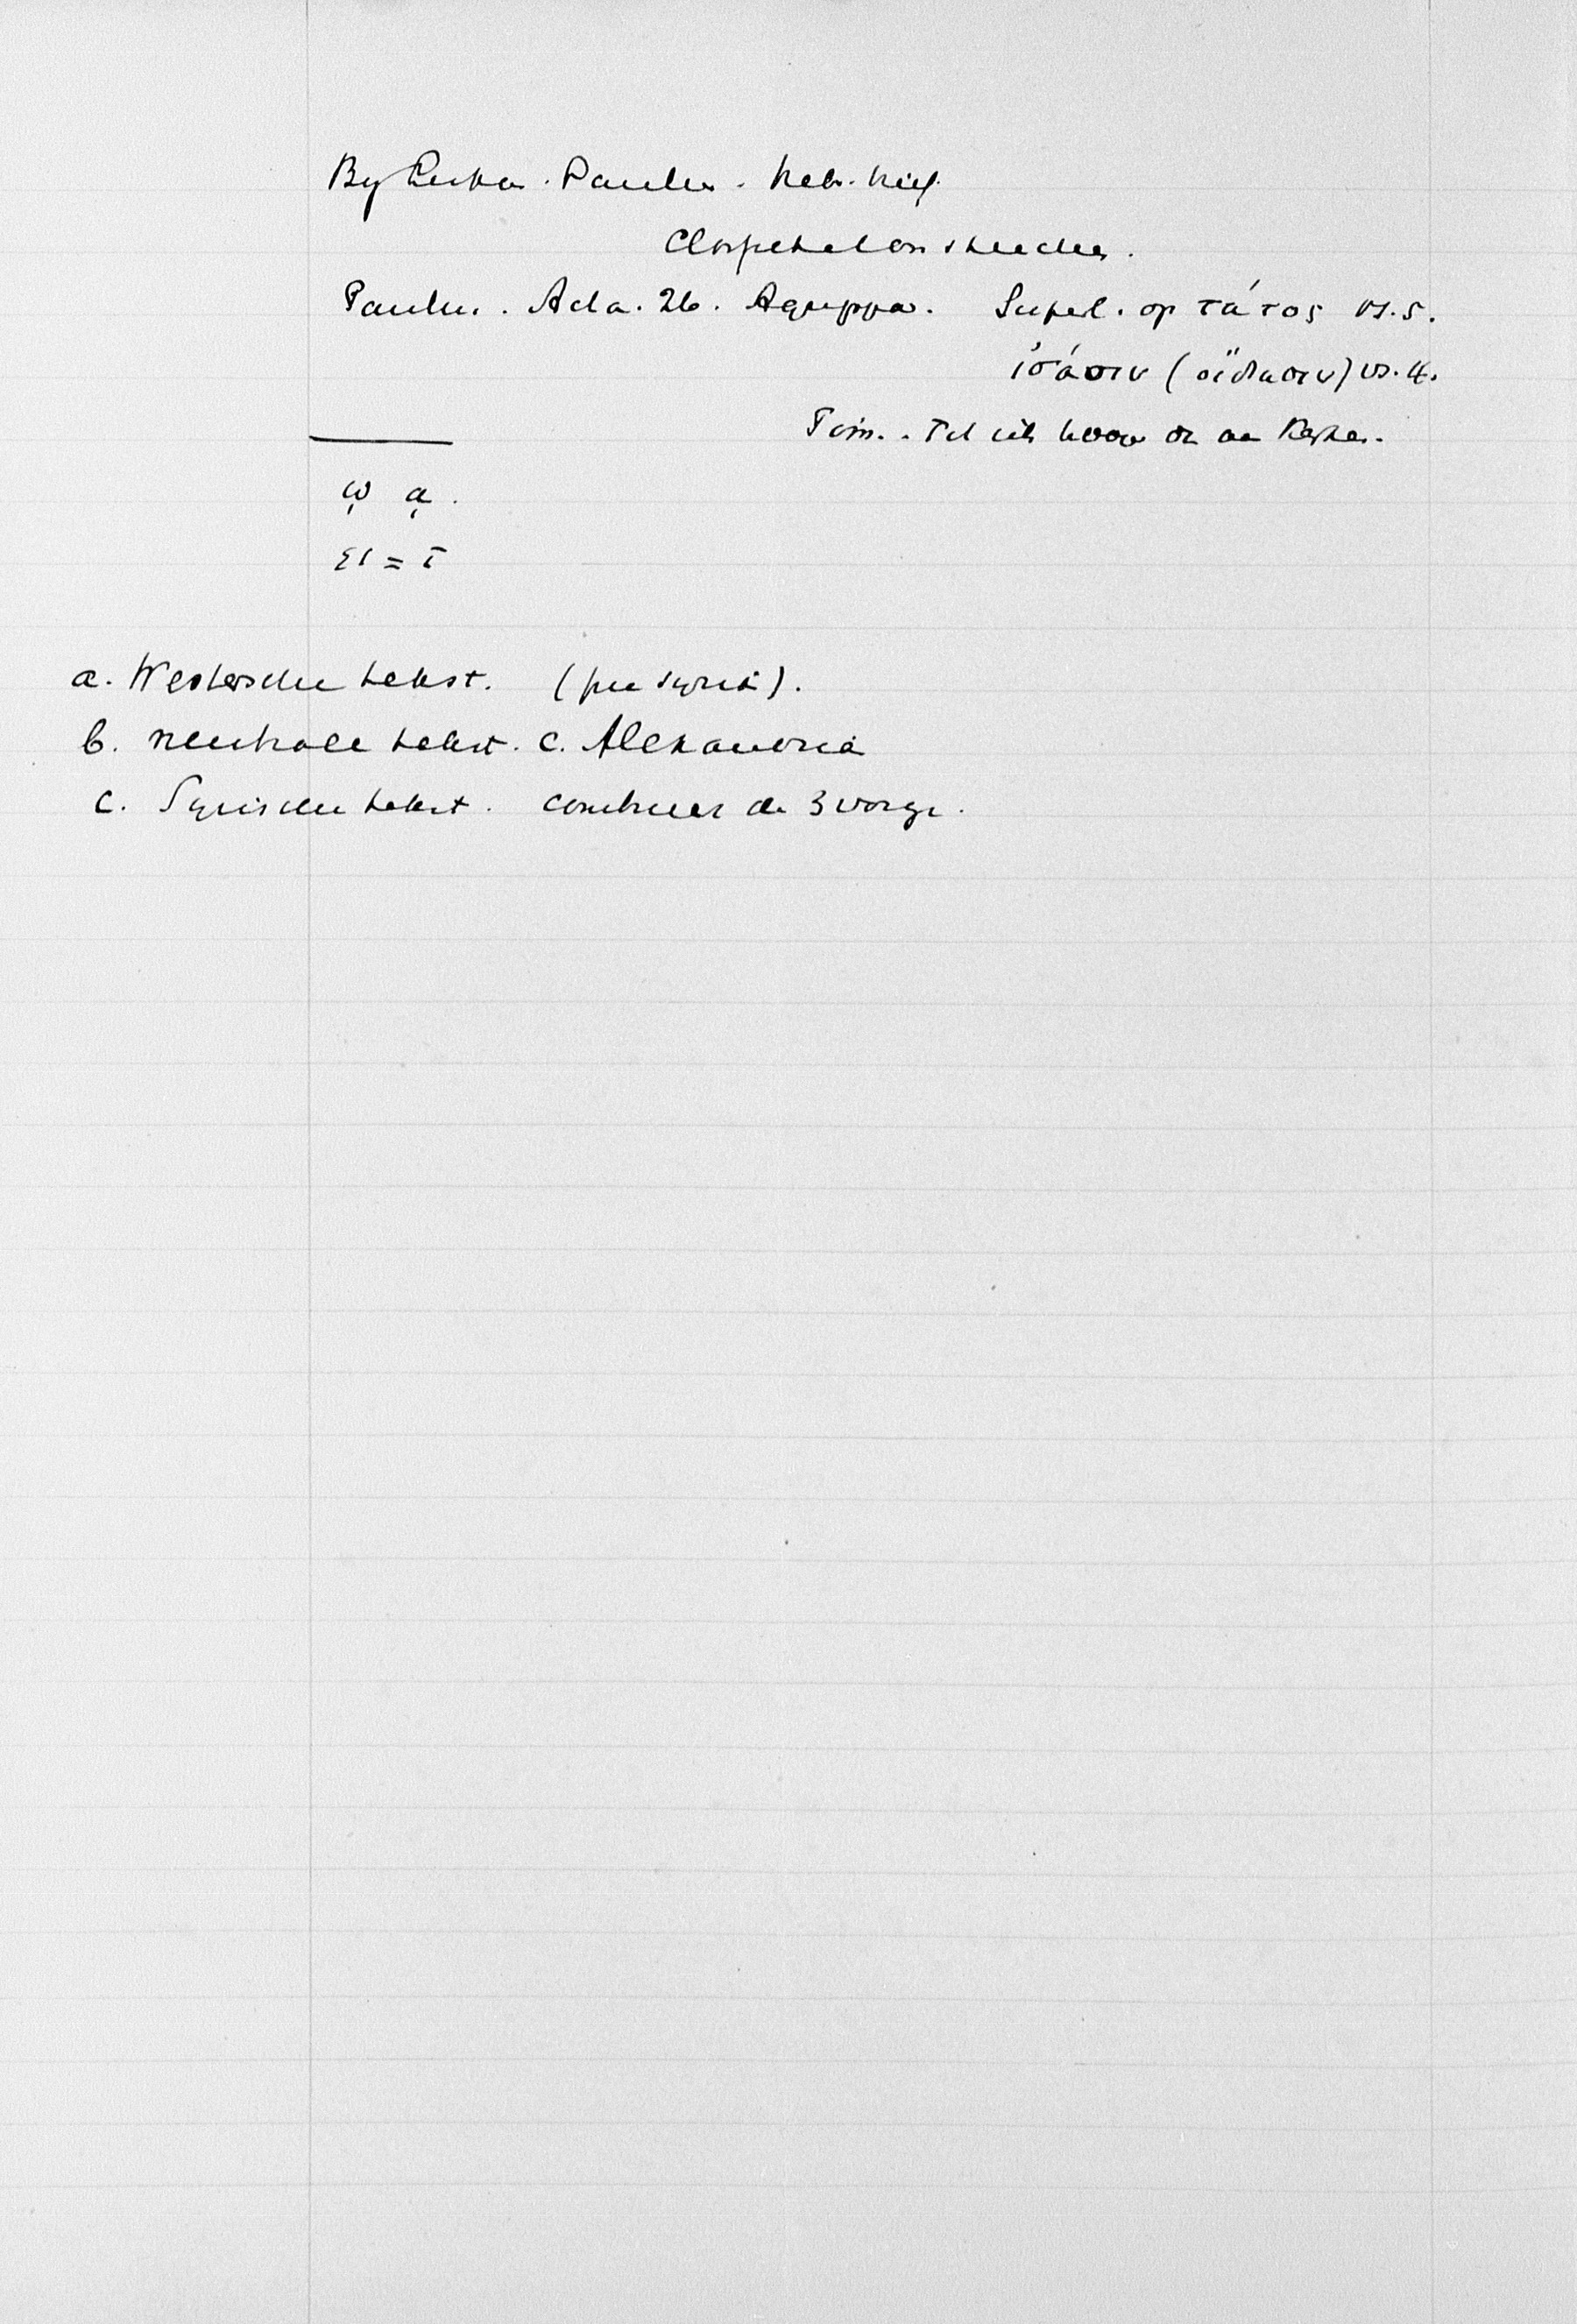 By Lukas. Paulus. Hebr. brief.
Paulus. Acta. 26. Agrippa. Superl. op τάτος vs. 5.
ἰσάσιν (οἴδασιν) vs. 4.
ῳ ᾳ.
ει = ῑ
a. Westersche tekst. (pre syria).
b. neutrale tekst. c. Alexandria
c. Syrische tekst. combineer de 3 vorige.